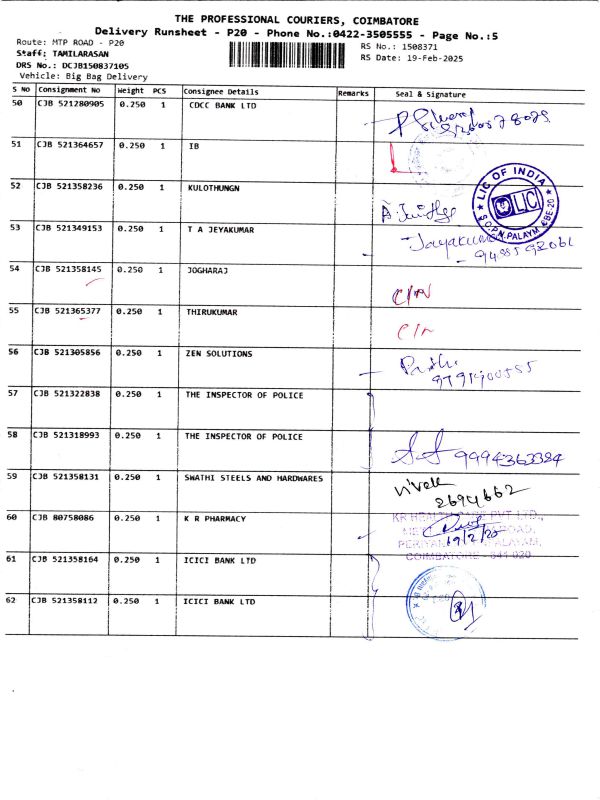 THE PROFESSIONAL COURIERS, COIMBATORE
Delivery Runsheet - P20 - Phone No.:0422-3505555 - Page No.:5
Route: MTP ROAD - P20
RS No.: 1508371
Staff: TAMILARASAN
RS Date: 19-Feb-2025
DRS No.: DCJB150837105
Vehicle: Big Bag Delivery
S No Consignment No Weight PCS Consignee Details Remarks Seal & Signature
50 CJB 521280905 0.250 1 CDCC BANK LTD
51 CJB 521364657 0.250 1 IB
52 CJB 521358236 0.250 1 KULOTHUNGN
LIC OF INDIA
LIC
53 CJB 521349153 0.250 1 T A JEYAKUMAR
Jayakumar
54 CJB 521358145 0.250 1 JOGHARAJ
C/N
55 CJB 521365377 0.250 1 THIRUKUMAR
56 CJB 521305856 0.250 1 ZEN SOLUTIONS
57 CJB 521322838 0.250 1 THE INSPECTOR OF POLICE
58 CJB 521318993 0.250 1 THE INSPECTOR OF POLICE
9994363384
59 CJB 521358131 0.250 1 SWATHI STEELS AND HARDWARES
2694662
60 CJB 80758086 0.250 1 K R PHARMACY
19/2/20
COIMBATORE - 641 020
61 CJB 521358164 0.250 1 ICICI BANK LTD
62 CJB 521358112 0.250 1 ICICI BANK LTD